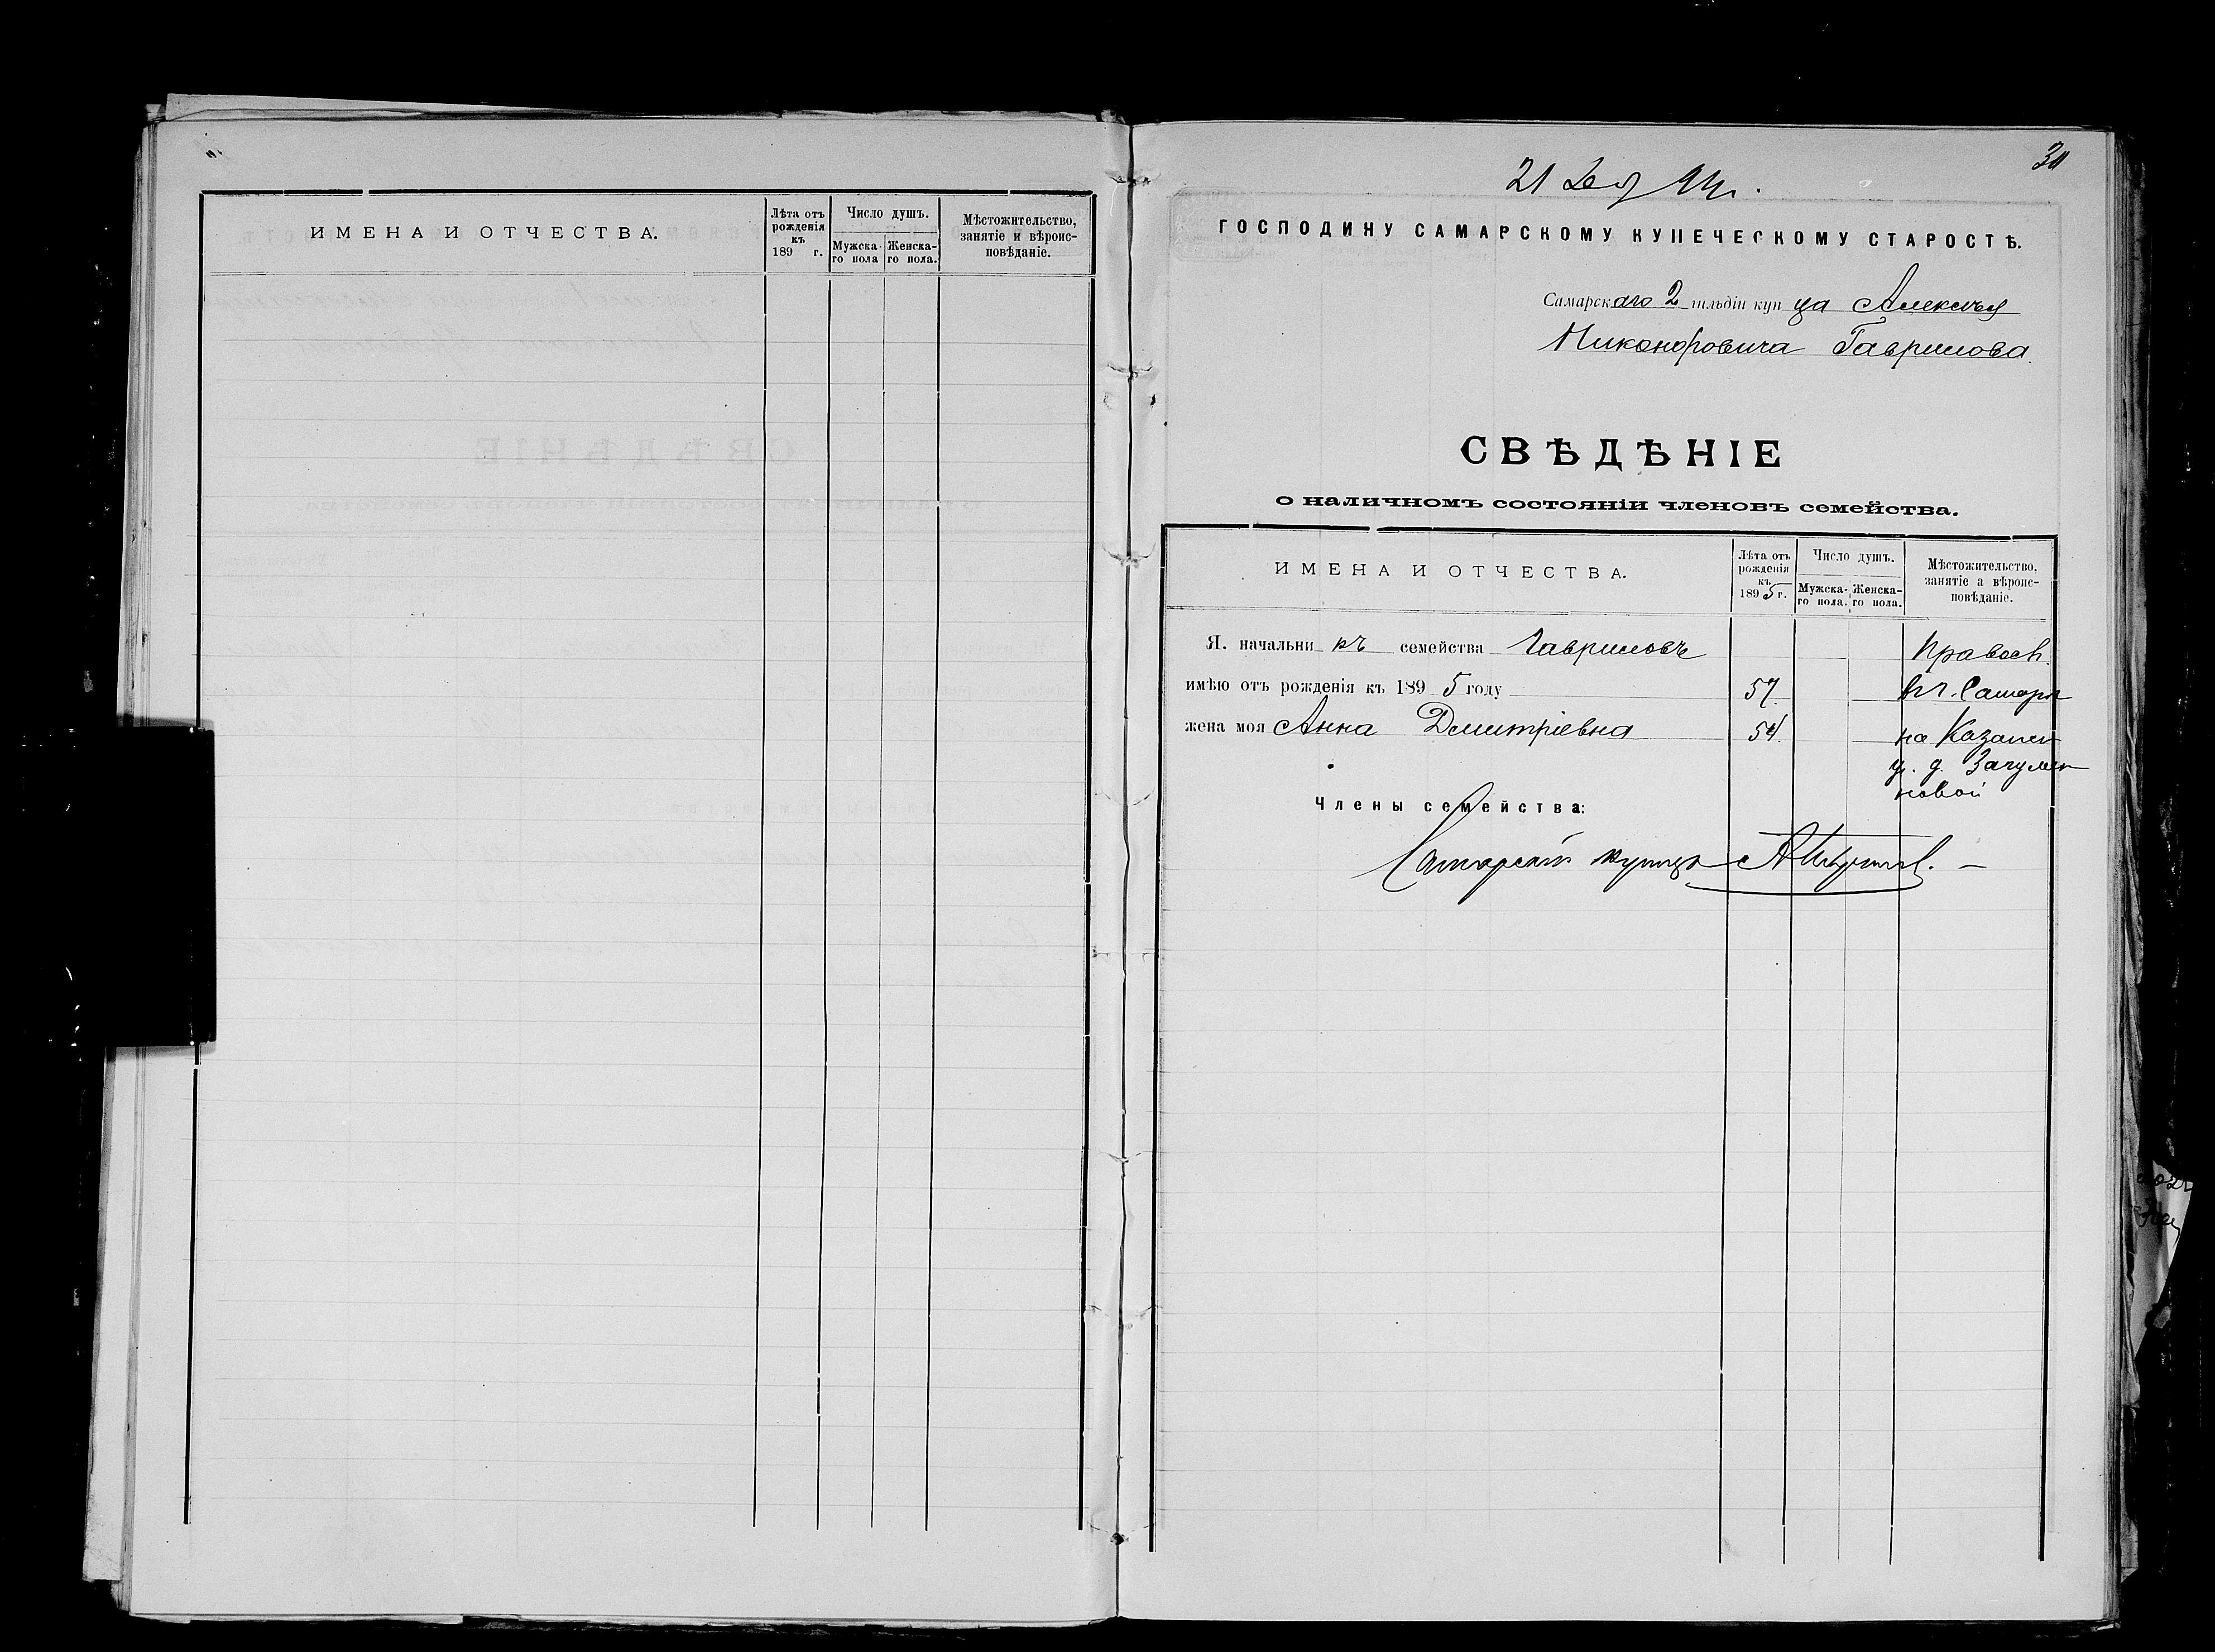 ИМЕНА И ОТЧЕСТВА.
Лѣта отъ рожденія къ 189 г.
Число душъ.
Мужска-го пола
Женска-го пола.
Мѣстожительство, занятіе и вѣроис-повѣданіе.
30
21 Дек 94 г.
ГОСПОДИНУ САМАРСКОМУ КУПЕЧЕСКОМУ СТАРОСТѢ.
Самарскаго 2 гильдіи купца Алексѣя
Никоноровича Гаврилова.
СВѢДѢНІЕ
о наличномъ состояніи членовъ семейства.
ИМЕНА И ОТЧЕСТВА.
Лѣта отъ рожденія къ 1895 г.
Число душъ.
Мужска-го пола.
Женска-го пола.
Мѣстожительство, занятіе а вѣроис-повѣданіе.
Я. начальникъ семейства Гавриловъ Правосл.
имѣю отъ рожденія къ 1895 году 57. въ г. Самарѣ
жена моя Анна Дмитріевна 54. на Казанск
у. д. Загумен
новой
Члены семейства:
Самарскій купецъ